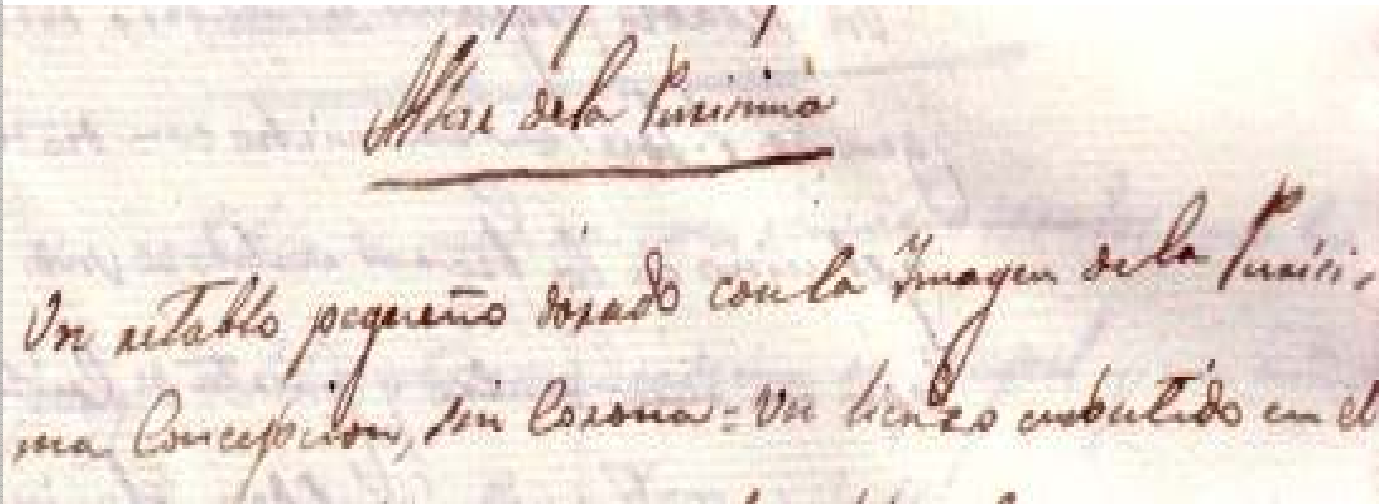 Altar dela Purisima
Un retablo pequeño dorado con la Ymagen dela Purísi-
ma Concepcion, sin Corona = Un lienzo embutido en el